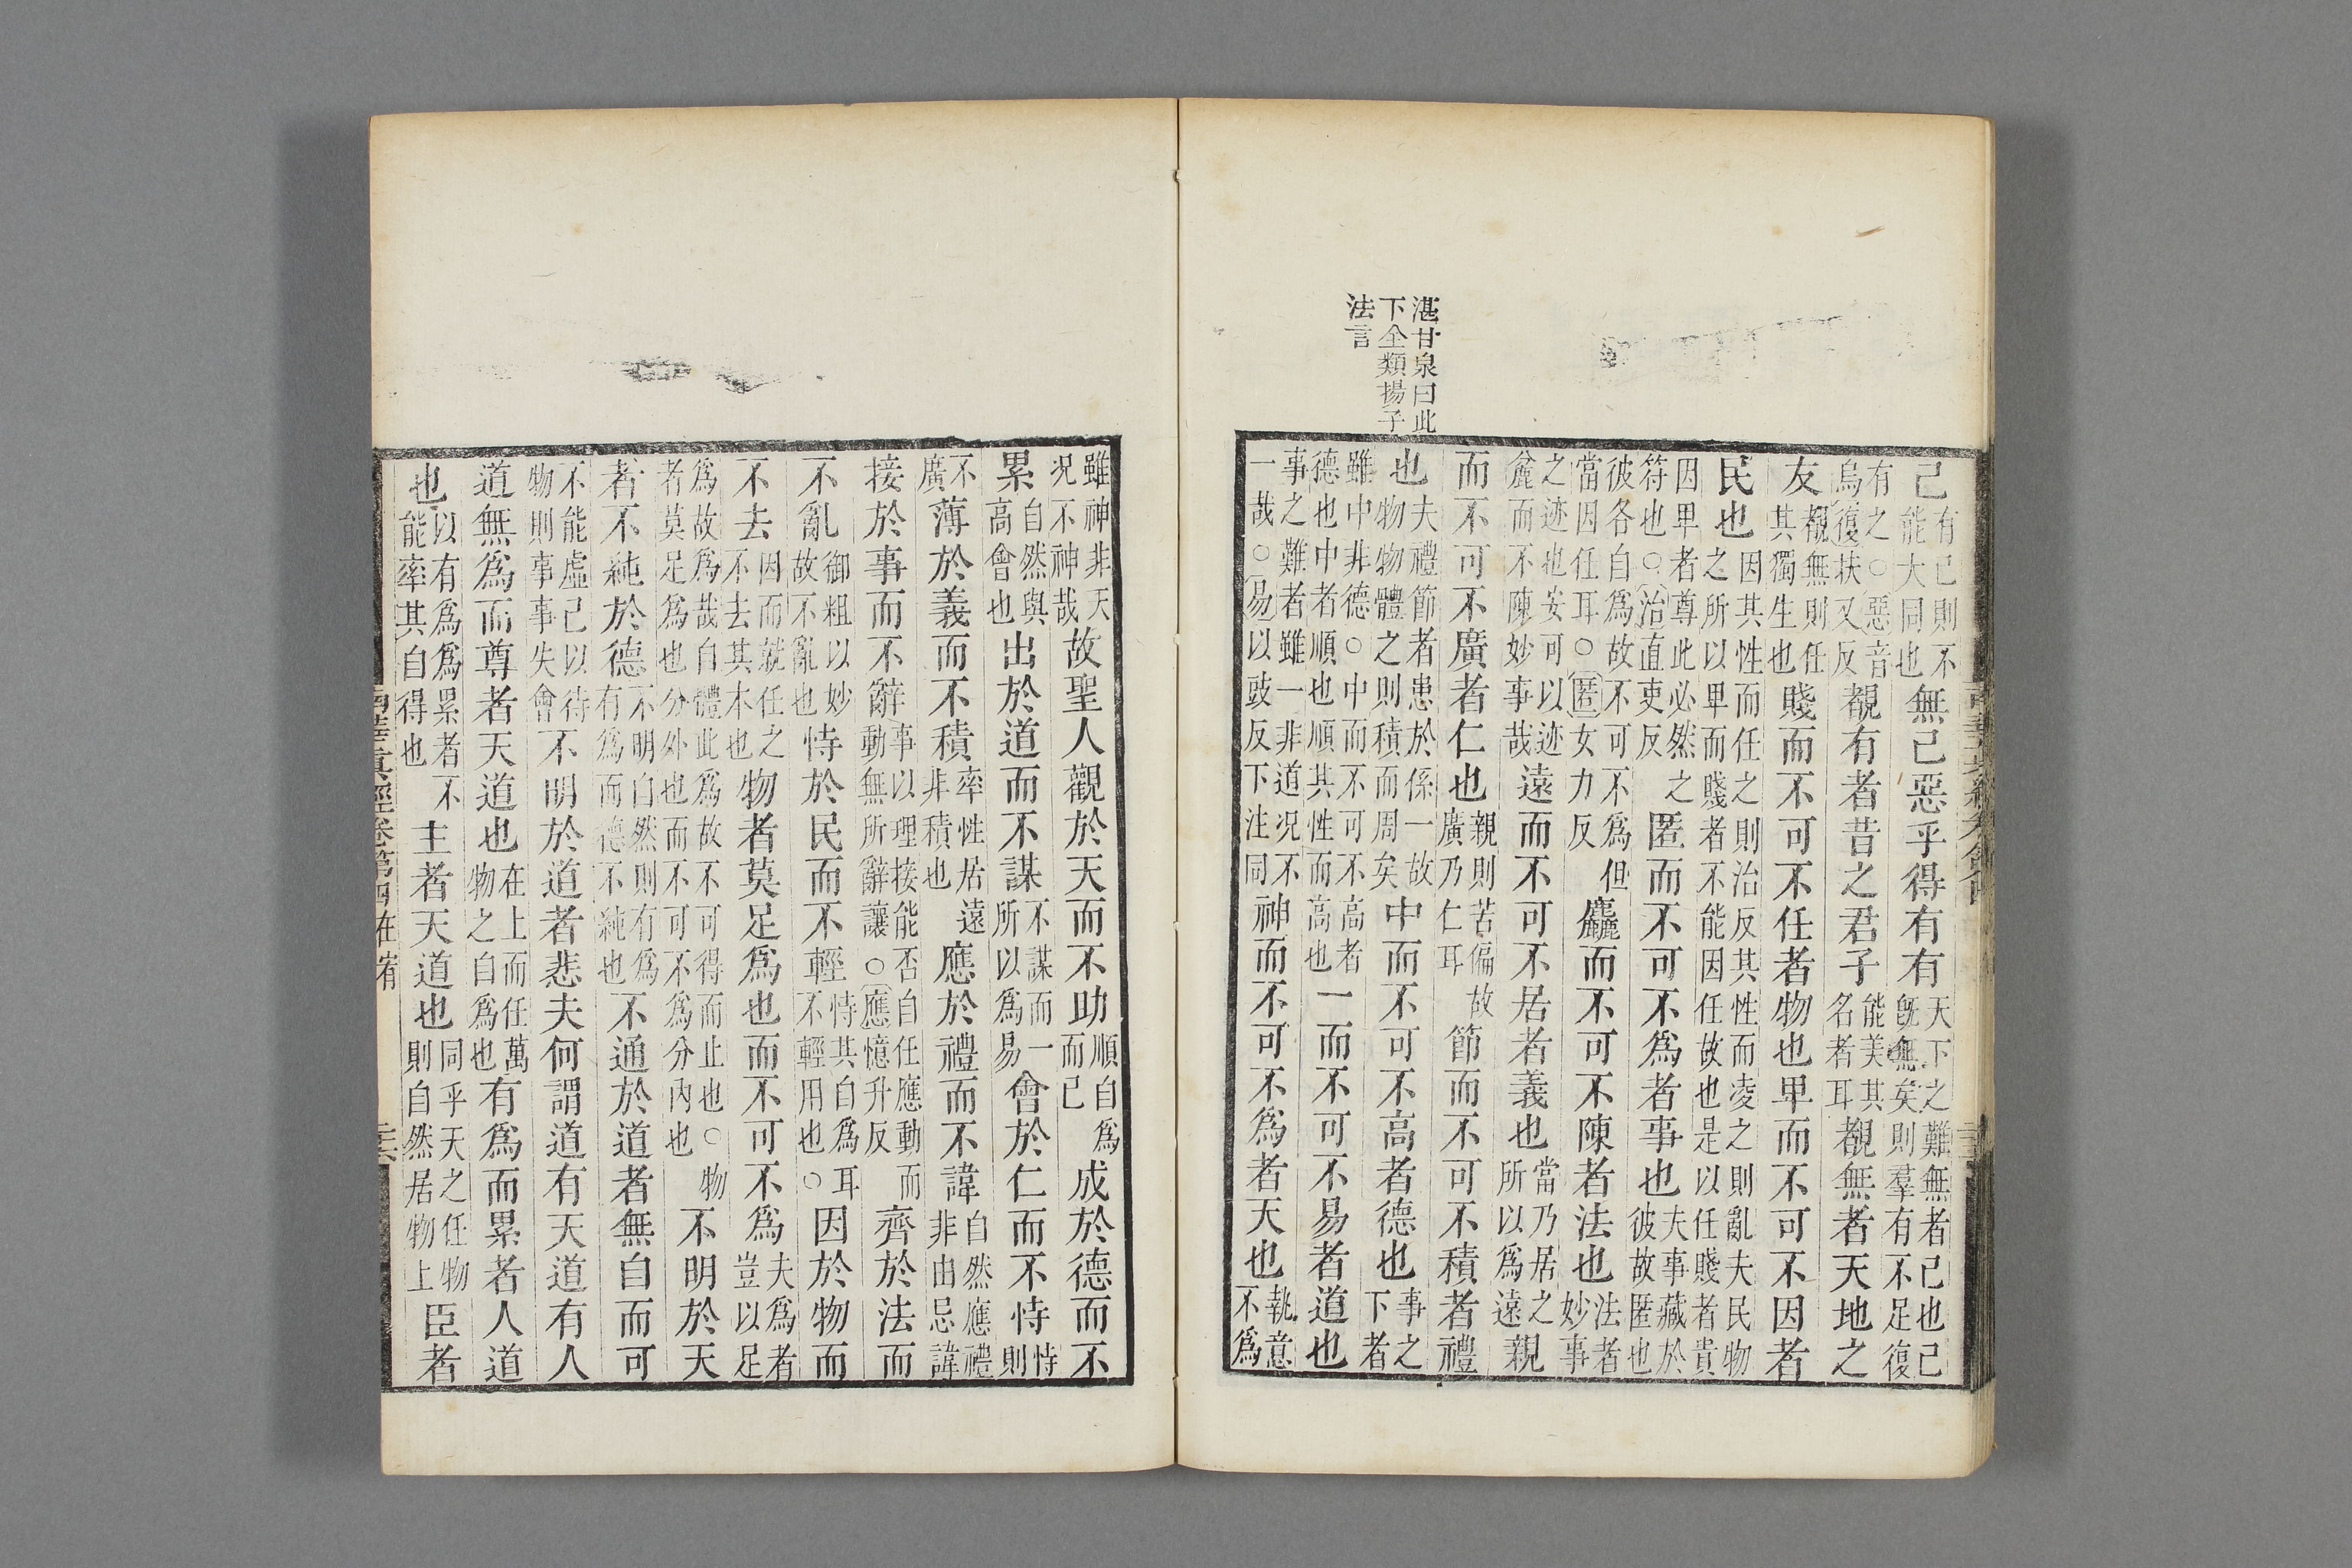 湛甘泉曰此
下全類揚子
法言
己有己則不能大同也無己惡乎得有有天下之難無者己也己旣無矣則羣有不足復
有之○惡音烏復扶又反覩有者昔之君子能美其名者耳覩無者天地之
友覩無則任其獨生也賤而不可不任者物也卑而不可不因者
民也因其性而任之則治反其性而凌之則亂夫民物之所以卑而賤者不能因任故也是以任賤者貴
因卑者尊此必然之符也○治直吏反匿而不可不爲者事也夫事藏於彼故匿也
彼各自爲故不可不爲但當因任耳○匿女力反麤而不可不陳者法也法者妙事
之迹也安可以迹麄而不陳妙事哉遠而不可不居者義也當乃居之所以爲遠親
而不可不廣者仁也親則苦偏故廣乃仁耳節而不可不積者禮
也夫禮節者患於係一故物物體之則積而周矣中而不可不高者德也事之下者
雖中非德○中而不可不高者德也中者順也順其性而高也一而不可不易者道也
事之難者雖一非道况不一哉○易以豉反下注同神而不可不爲者天也執意不爲
雖神非天况不神哉故聖人觀於天而不助順自爲而已成於德而不
累自然與高會也出於道而不謀不謀而一所以爲易會於仁而不恃恃則
不廣薄於義而不積率性居遠非積也應於禮而不諱自然應禮非由忌諱
接於事而不辭事以理接能否自任應動而動無所辭讓○應憶升反齊於法而
不亂御粗以妙故不亂也恃於民而不輕恃其自爲耳不輕用也○因於物而
不去因而就任之不去其本也物者莫足爲也而不可不爲夫爲者豈以足
爲故爲哉自體此爲故不可得而止也○物者莫足爲也分外也而不可不爲分內也不明於天
者不純於德不明自然則有爲有爲而德不純也不通於道者無自而可
不能虛己以待物則事事失會不明於道者悲夫何謂道有天道有人
道無爲而尊者天道也在上而任萬物之自爲也有爲而累者人道
也以有爲爲累者不能率其自得也主者天道也同乎天之任物則自然居物上臣者
南華真經卷第四在宥